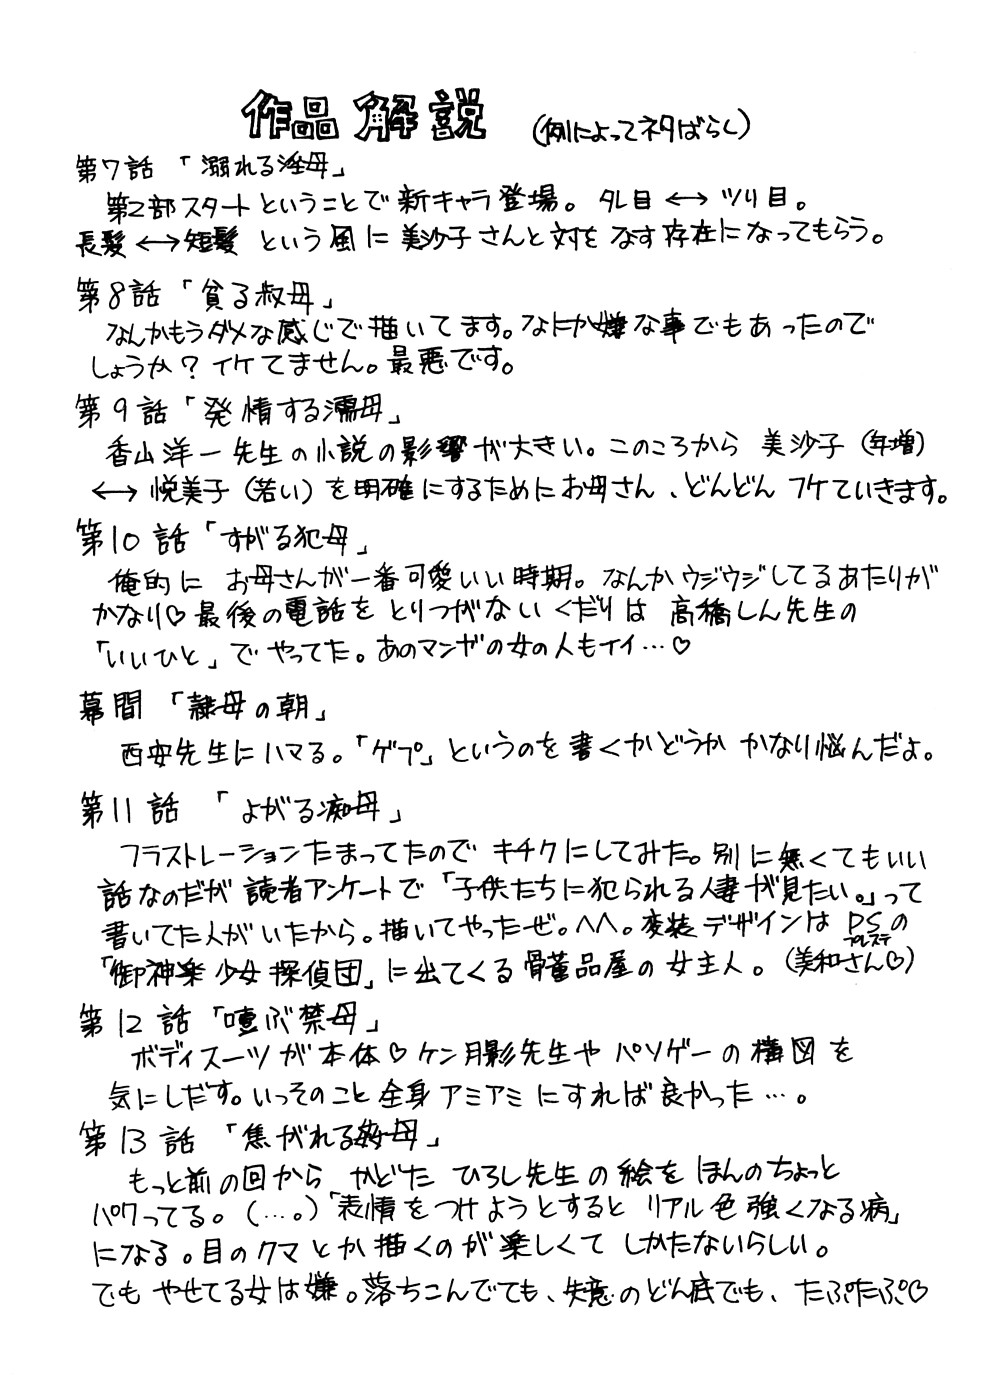 作品解説 (例によってネタばらし)
第7話 「溺れる淫母」
第2部スタートということで新キャラ登場。 タレ目 ←→ ツリ目。
長髪 ←→ 短髪 という風に美沙子さんと対をなす存在になってもらう。
第8話 「貪る叔母」
なんかもうダメな感じで描いてます。なにか嫌な事でもあったので
しょうか? イケてません。最悪です。
第9話 「発情する濡母」
香山洋一先生の小説の影響が大きい。このころから 美沙子 (年増)
←→ 悦美子 (若い) を明確にするためにお母さん、どんどん フケていきます。
第10話 「すがる犯母」
俺的に お母さんが一番可愛いい時期。なんかウジウジしてるあたりが
かなり♡ 最後の電話を とりつがないくだりは 高橋しん先生の
「いいひと」でやってた。あのマンガの女の人もイイ…♡
幕間 「隷母の朝」
西安先生にハマる。「ゲプ」というのを書くかどうか かなり悩んだよ。
第11話 「よがる痴母」
フラストレーションたまってたので キチクにしてみた。別に無くてもいい
話なのだが 読者アンケートで「子供たちに犯られる人妻が見たい。」って
書いてた人がいたから。描いてやったぜ。へへ。変装デザインは PSの
プレステ
「御神楽少女探偵団」に出てくる骨董品屋の女主人。(美和さん♡)
第12話 「咽ぶ禁母」
ボディスーツが本体♡ ケン月影先生や パソゲーの構図を
気にしだす。いっそのこと全身アミアミにすれば良かった…。
第13話 「焦がれる母」
もっと前の回から かどた ひろし先生の絵を ほんのちょっと
パクってる。(…。)「表情をつけようとすると リアル色強くなる病」
になる。目のクマとか描くのが楽しくて しかたないらしい。
でも やせてる女は嫌。落ちこんでても、失意のどん底でも、たぷたぷ♡